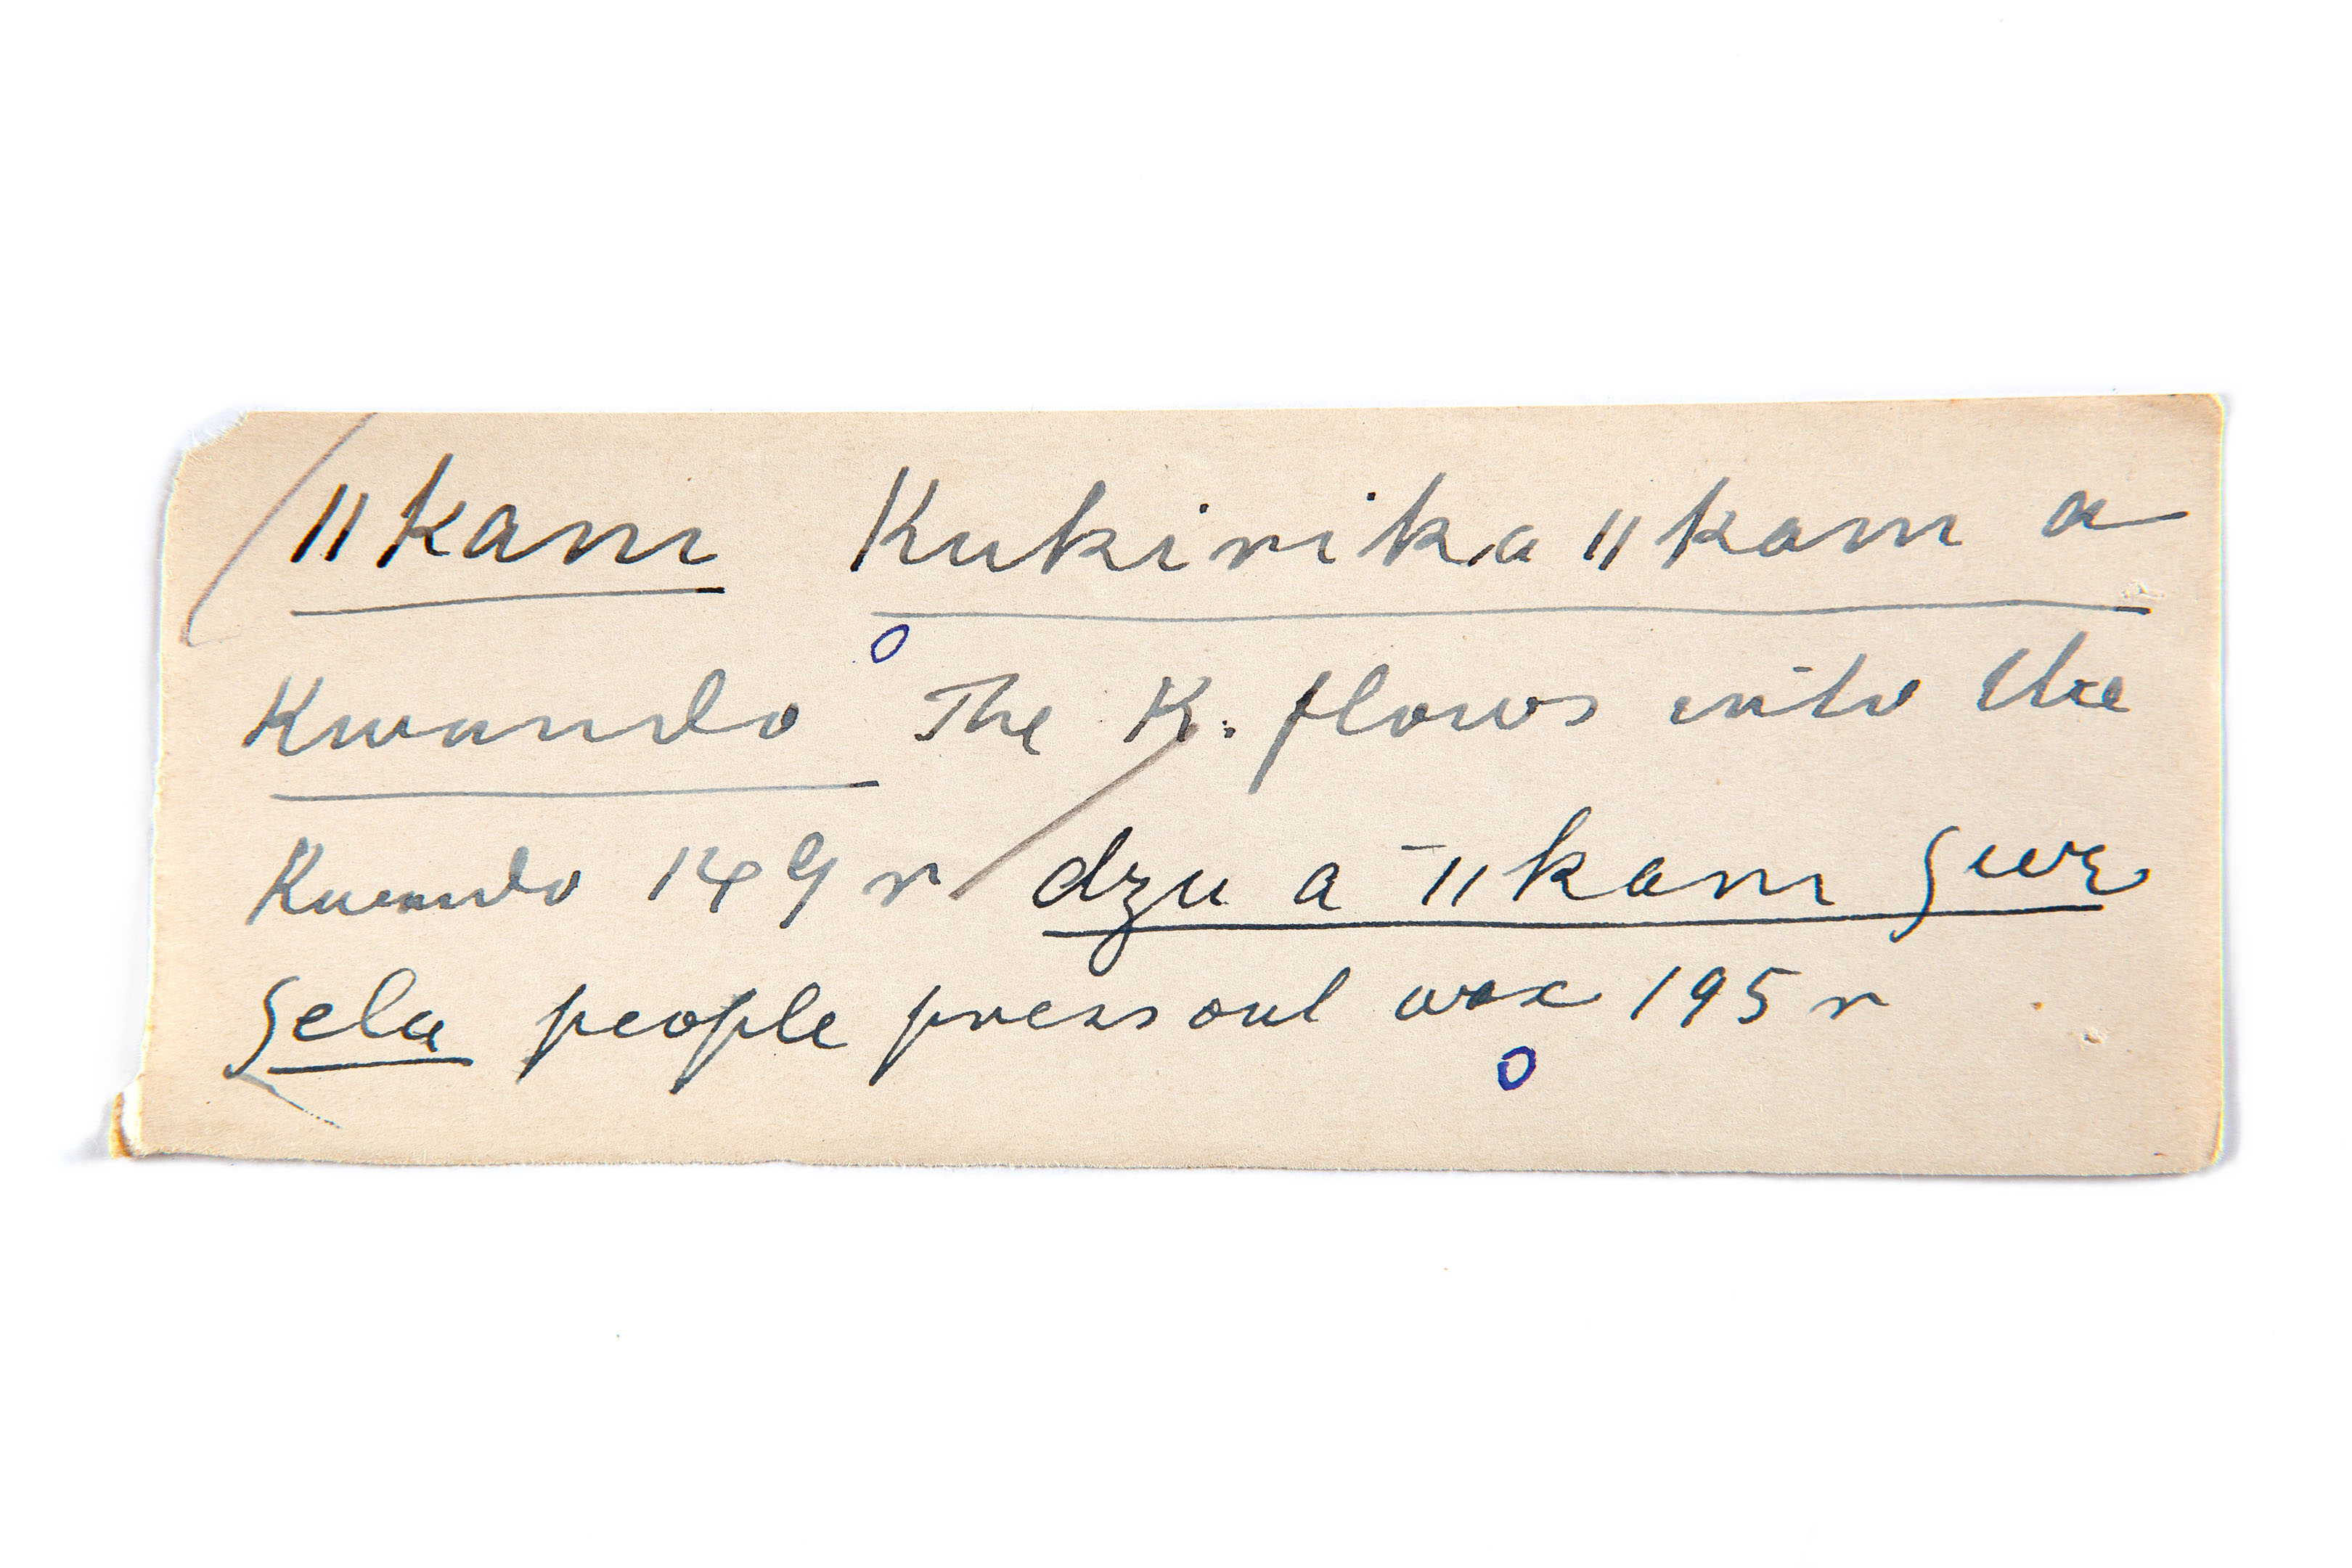 ǁkam Kukirika ǁkam a
Kwando The K. flows into the
Kwando 149 r / dzu a ¯ǁkam
people press out wax 195 r